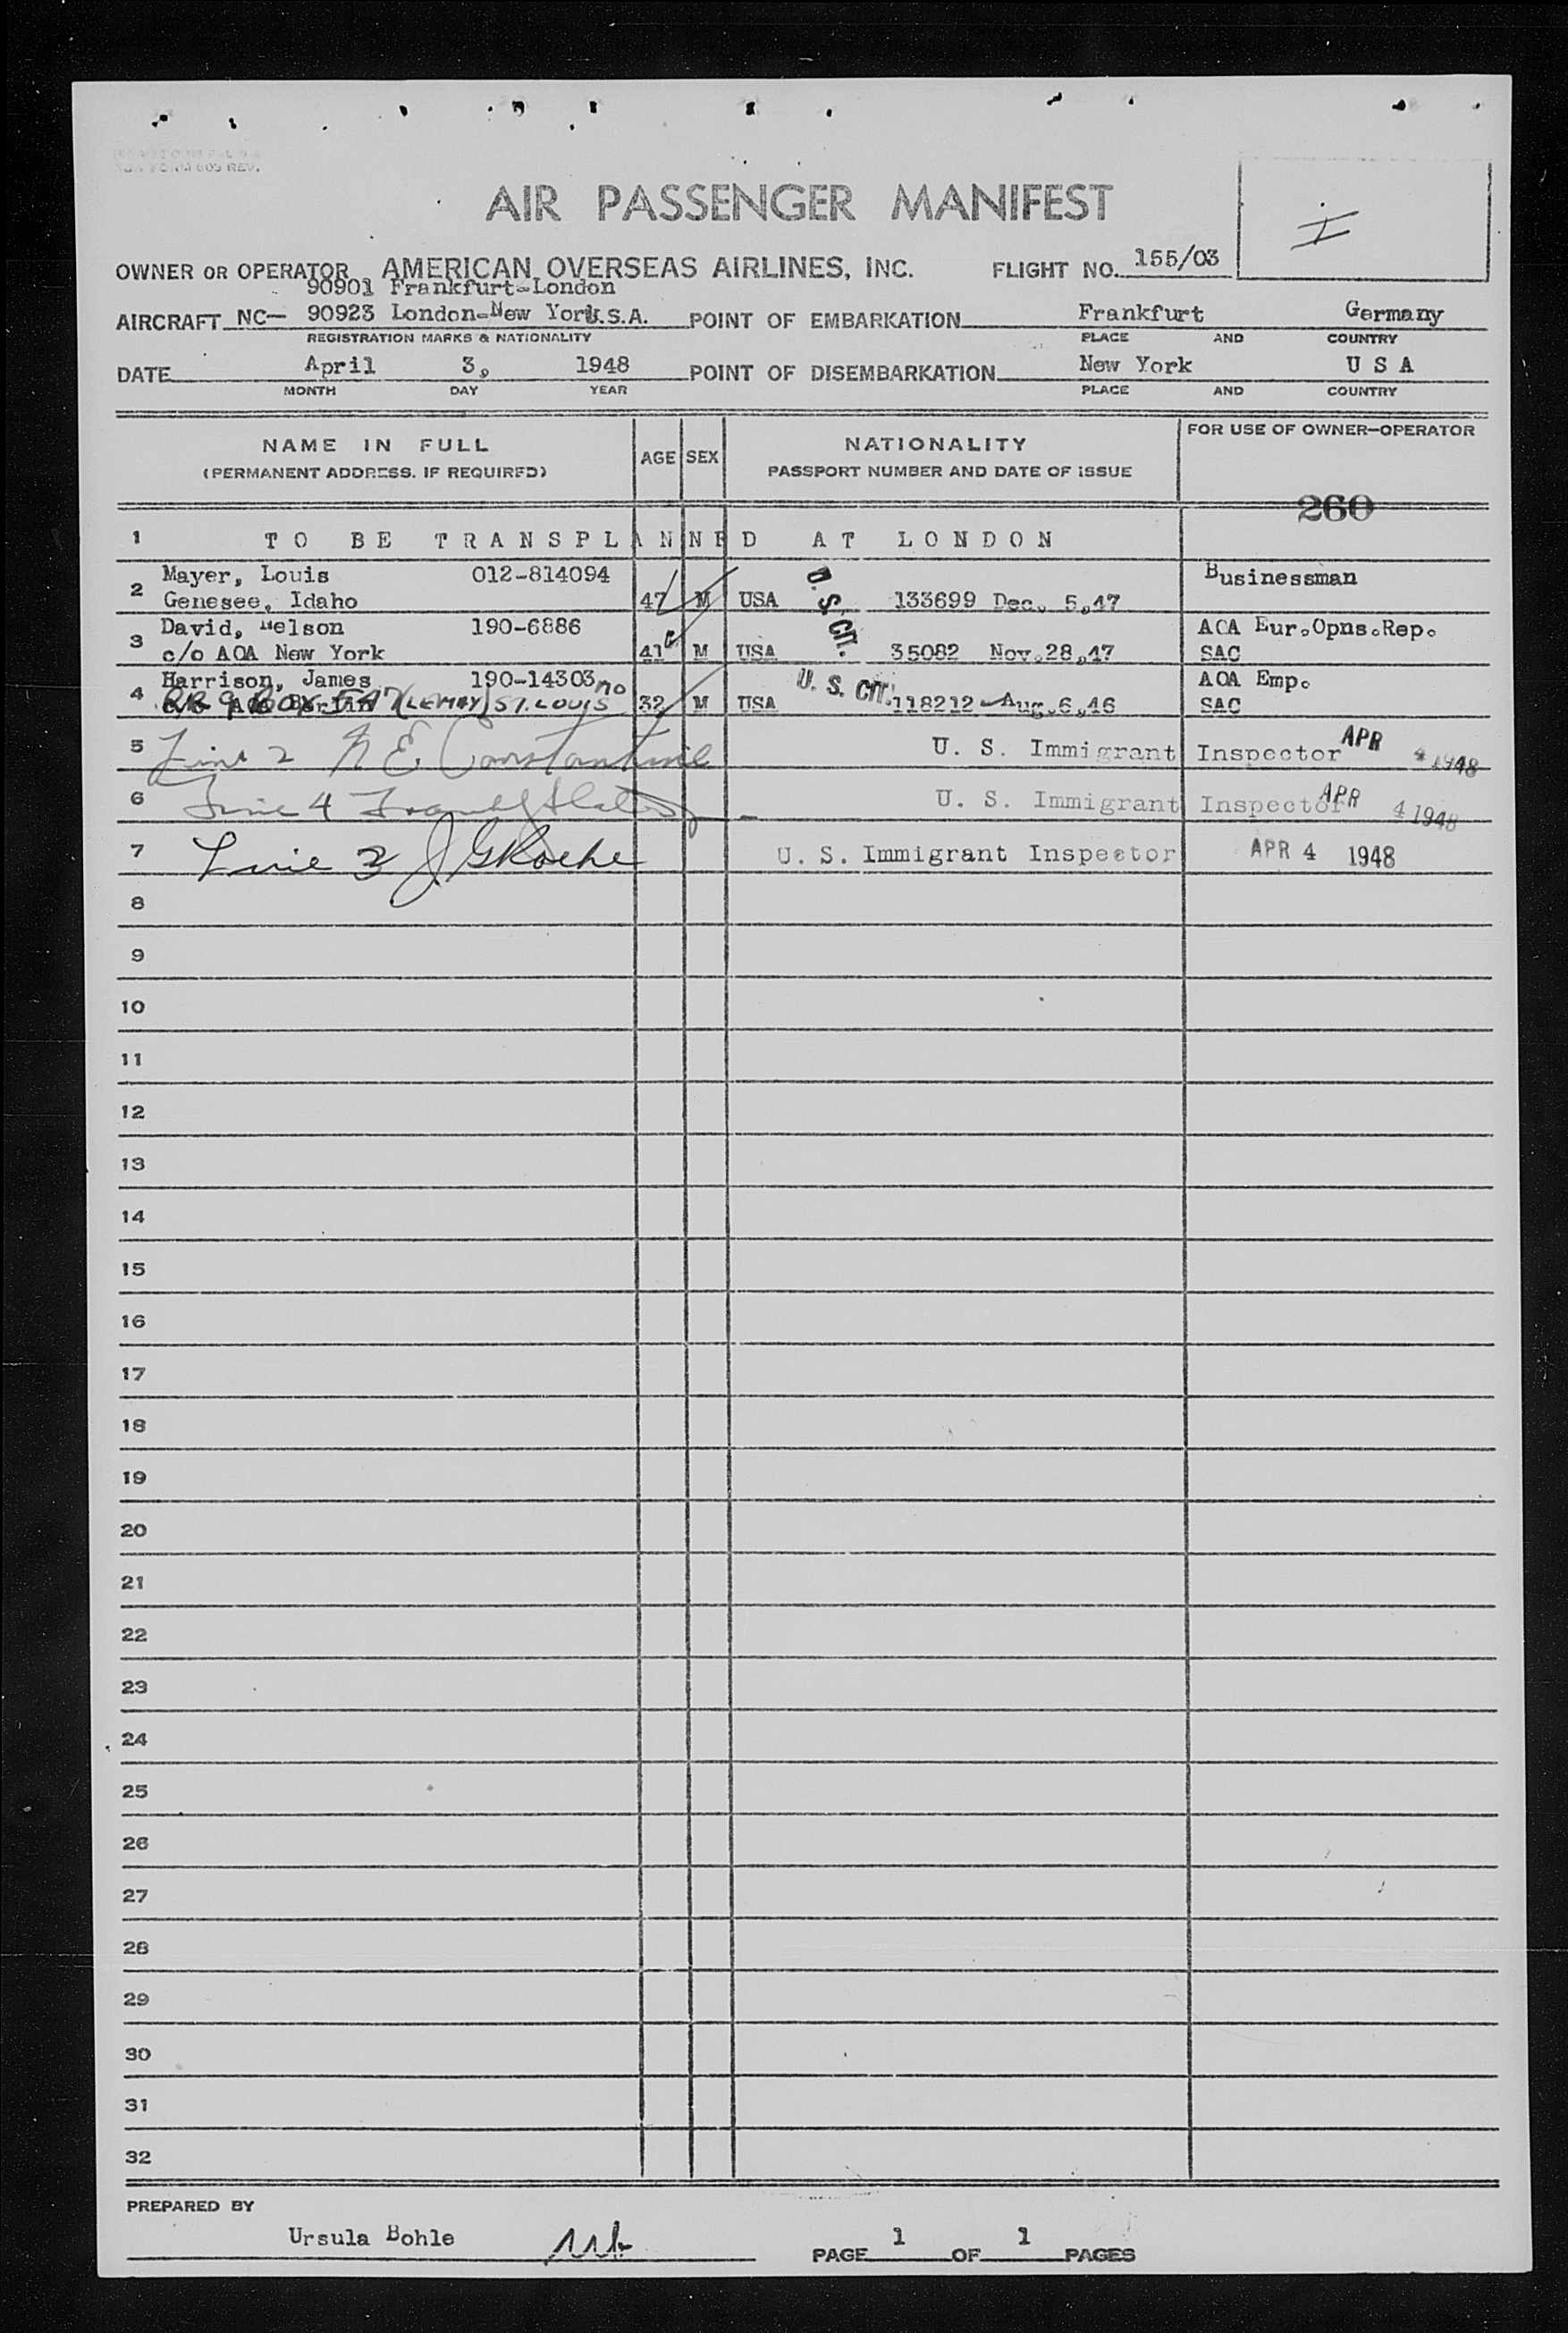 FORM 609 REV.
AIR PASSENGER MANIFEST
OWNER OR OPERATOR AMERICAN OVERSEAS AIRLINES, INC. FLIGHT NO. 155/03
90901 Frankfurt-London
AIRCRAFT NC— 90923 London-New York U.S.A. POINT OF EMBARKATION Frankfurt Germany
REGISTRATION MARKS & NATIONALITY PLACE AND COUNTRY
DATE April 3, 1948 POINT OF DISEMBARKATION New York U S A
MONTH DAY YEAR PLACE AND COUNTRY
NAME IN FULL
(PERMANENT ADDRESS. IF REQUIRED)
AGE SEX
NATIONALITY
PASSPORT NUMBER AND DATE OF ISSUE
FOR USE OF OWNER—OPERATOR
260
1 TO BE TRANSPLANNED AT LONDON
2 Mayer, Louis 012-814094 Businessman
Genesee, Idaho 47 M USA U. S. CIT. 133699 Dec. 5,47
3 David, Nelson 190-6886 AOA Eur.Opns.Rep.
c/o AOA New York 41 M USA 35082 Nov.28,47 SAC
4 Harrison, James 190-14303 AOA Emp.
RR 9 BOX 547 (LEMAY) ST. LOUIS MO 32 M USA U. S. CIT. 118212 Aug.6,46 SAC
5 Line 2 N E Constantine U. S. Immigrant Inspector APR 4 1948
6 Line 4 U. S. Immigrant Inspector APR 4 1948
7 Line 3 J G Roche U. S. Immigrant Inspector APR 4 1948
8
9
10
11
12
13
14
15
16
17
18
19
20
21
22
23
24
25
26
27
28
29
30
31
32
PREPARED BY
Ursula Bohle
PAGE 1 OF 1 PAGES